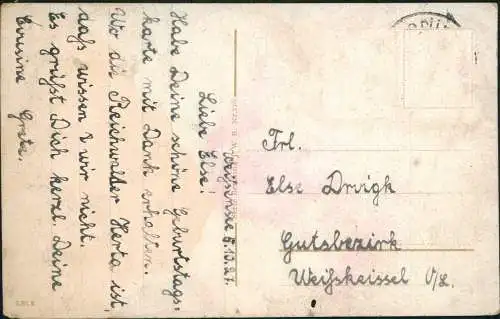 Weißensee 5.10.27.
Liebe Else!
Habe Deine schöne Geburtstags=
karte mit Dank erhalten.
Wo die Reichwalder Herta ist,
daß wissen wir nicht.
Es grüßt Dich herzl. Deine
Cousine Grete.
Frl.
Else Drvigk
Gutsbezirk
Weißkeissel O/L.